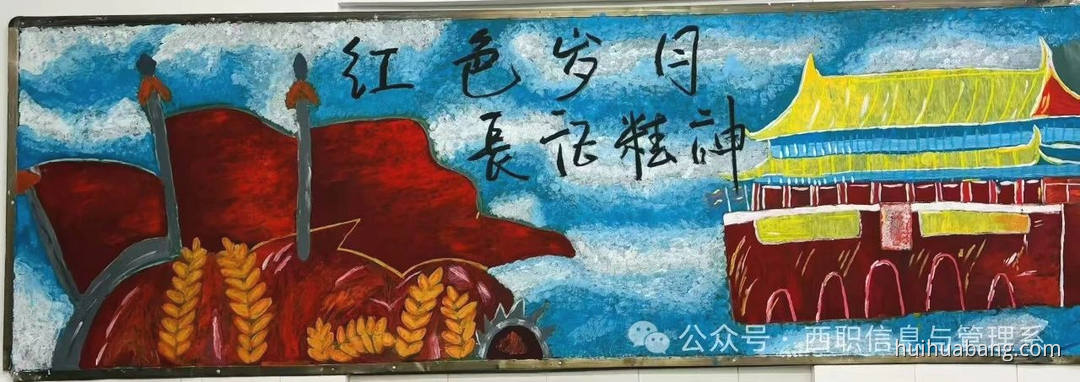 红色岁月
長征精神
公众号：西职信息与管理系
huihuabang.com